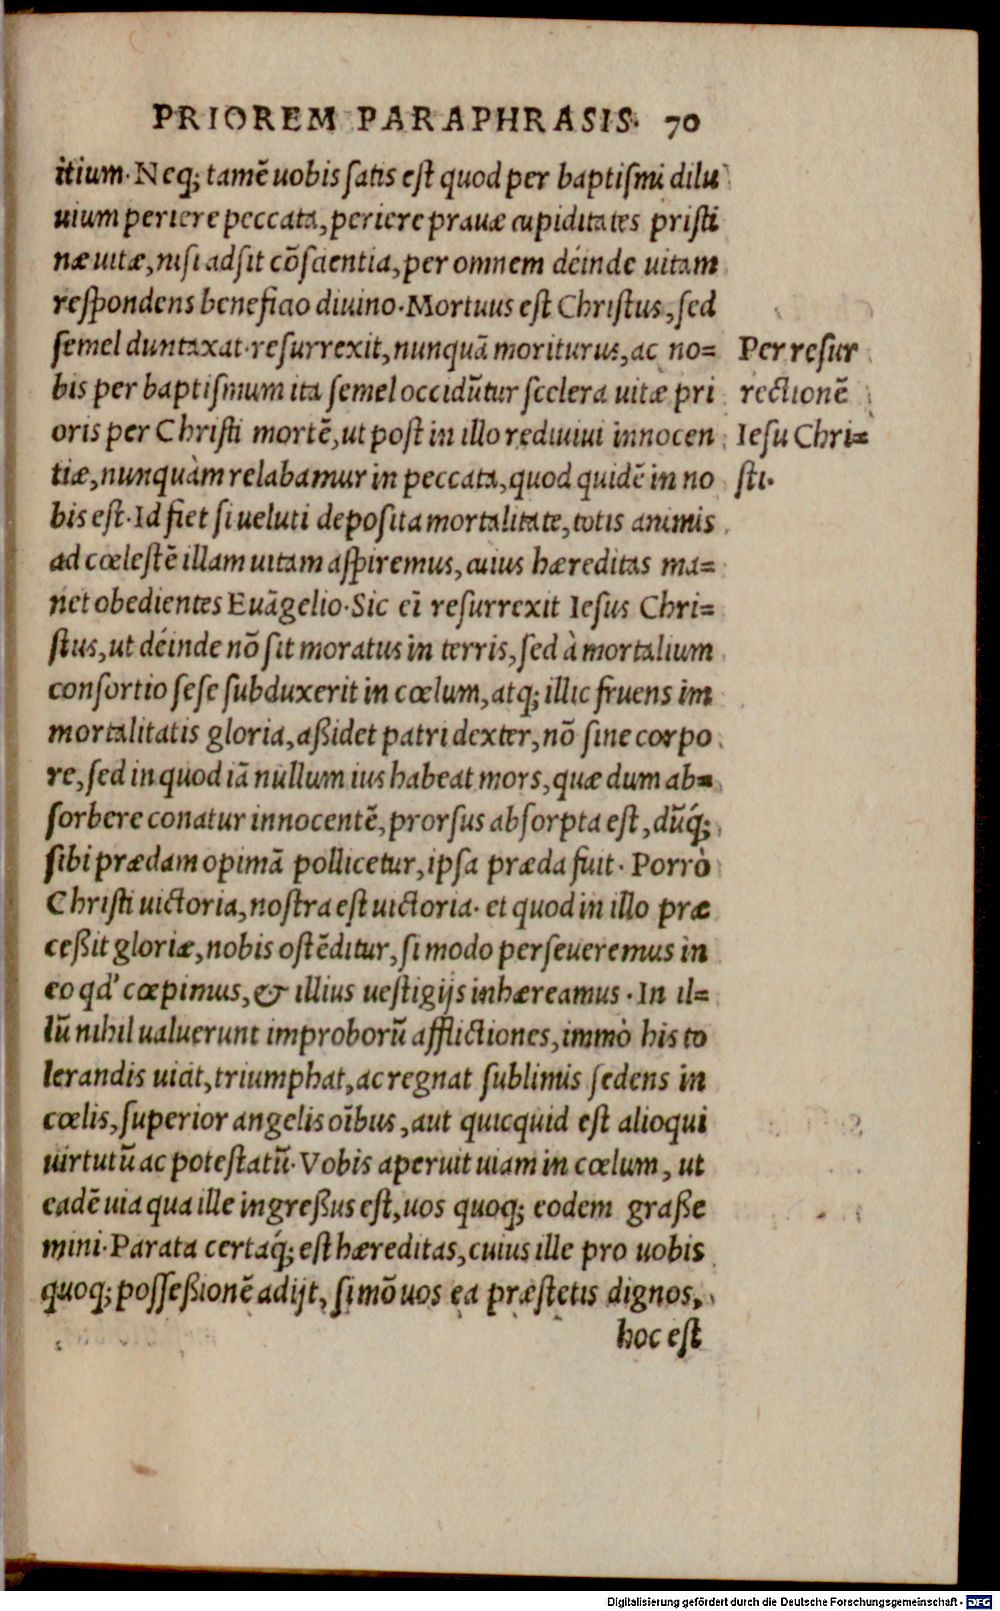 PRIOREM PARAPHRASIS. 70
itium. Neq; tamē uobis satis est quod per baptismi dilu
uium periere peccata, periere prauæ cupiditates pristi
næ uitæ, nisi adsit cōscientia, per omnem déinde uitam
respondens beneficio diuino. Mortuus est Christus, sed
semel duntaxat. resurrexit, nunquā moriturus, ac no=
bis per baptismum ita semel occidūtur scelera uitæ pri
oris per Christi mortē, ut post in illo rediuiui innocen
tiæ, nunquàm relabamur in peccata, quod quidē in no
bis est. Id fiet si ueluti deposita mortalitate, totis animis
ad cœlestē illam uitam aspiremus, cuius hæreditas ma=
net obedientes Euāgelio. Sic eī resurrexit Iesus Chri=
stus, ut déinde nō sit moratus in terris, sed à mortalium
consortio sese subduxerit in cœlum, atq; illic fruens im
mortalitatis gloria, aßidet patri dexter, nō sine corpo
re, sed in quod iā nullum ius habeat mors, quæ dum ab=
sorbere conatur innocentē, prorsus absorpta est, dūq́;
sibi prædam opimā pollicetur, ipsa præda fuit. Porrò
Christi uictoria, nostra est uictoria. et quod in illo præ
ceßit gloriæ, nobis ostēditur, si modo perseueremus in
eo qd' cœpimus, & illius uestigijs inhæreamus. In il=
lū nihil ualuerunt improborū afflictiones, immò his to
lerandis uicit, triumphat, ac regnat sublimis sedens in
cœlis, superior angelis oībus, aut quicquid est alioqui
uirtutū ac potestatū. Vobis aperuit uiam in cœlum, ut
eadē uia qua ille ingreßus est, uos quoq; eodem graße
mini. Parata certaq́; est hæreditas, cuius ille pro uobis
quoq; posseßionē adijt, si mō uos ea præstetis dignos,
hoc est
Per resur
rectionē
Iesu Chri=
sti.
Digitalisierung gefördert durch die Deutsche Forschungsgemeinschaft - DFG